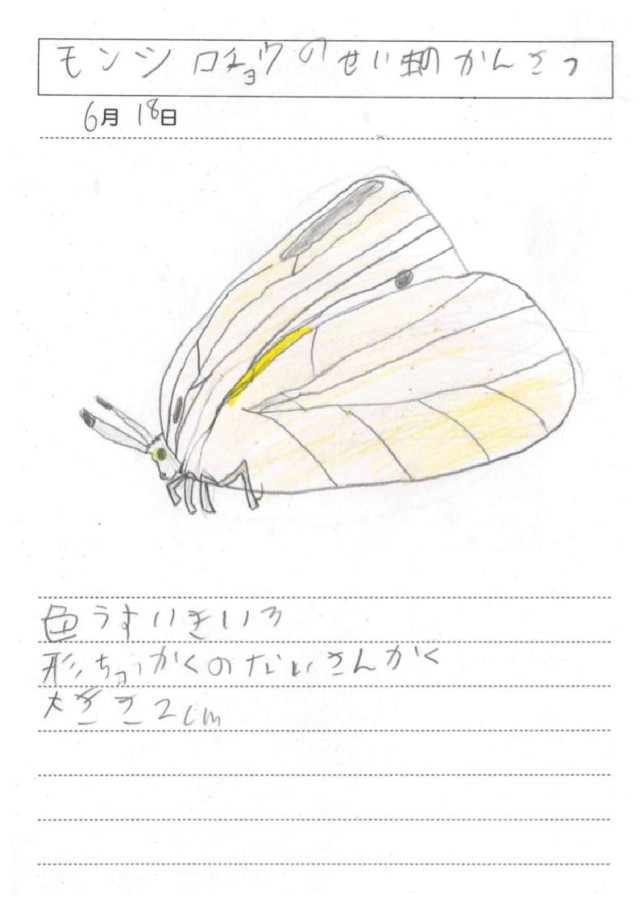 モンシロチョウのせい虫のかんさつ
6月18日
色うすいきいろ
形、ちょっかくのないさんかく
大きさ2cm